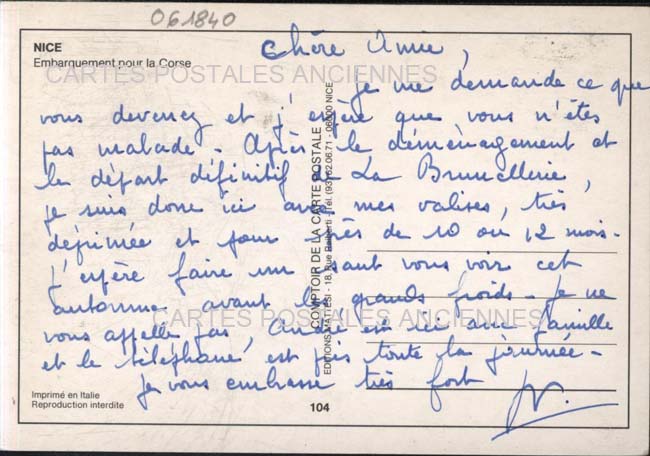 061840
NICE
Embarquement pour la Corse
CARTES POSTALES ANCIENNES
Chère Amie,
je me demande ce que
vous devenez et j'espère que vous n'êtes
pas malade - Après le déménagement et
le départ définitif de La Brunellerie,
je suis donc ici avec mes valises, très
déprimée et pour près de 10 ou 12 mois -
J'espère faire un saut vous voir cet
automne avant les grands froids - Je ne
vous appelle pas, André est ici en famille
et le téléphone est pris toute la journée -
Je vous embrasse très fort
CARTES POSTALES ANCIENNES
COMPTOIR DE LA CARTE POSTALE
EDITIONS MATTESI - 18, Rue - Tél. (93) 62.06.71 - 06000 NICE
Imprimé en Italie
Reproduction interdite
104